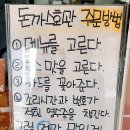 돈까스호관 주문방법
1. 메뉴를 고른다.
2. 맛을 고른다.
3. 카드를 꽂아준다.
4. 조리시간과 번호가
적힌 영수증을 챙긴다.